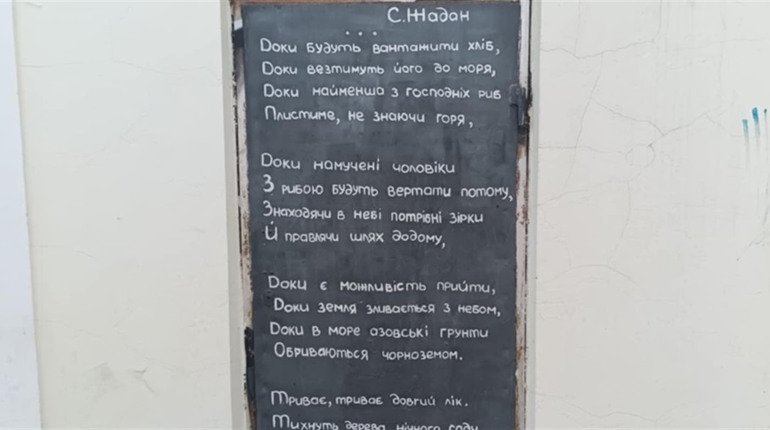 С.Жадан
...
Доки будуть вантажити хліб,
Доки везтимуть його до моря,
Доки найменша з господніх риб
Плистиме, не знаючи горя,
Доки намучені чоловіки
З рибою будуть вертати потому,
Знаходячи в небі потрібні зірки
Й правлячи шлях додому,
Доки є можливість прийти,
Доки земля зливається з небом,
Доки в море азовські ґрунти
Обриваються чорноземом.
Триває, триває довгий лік.
Тихнуть дерева нічного саду